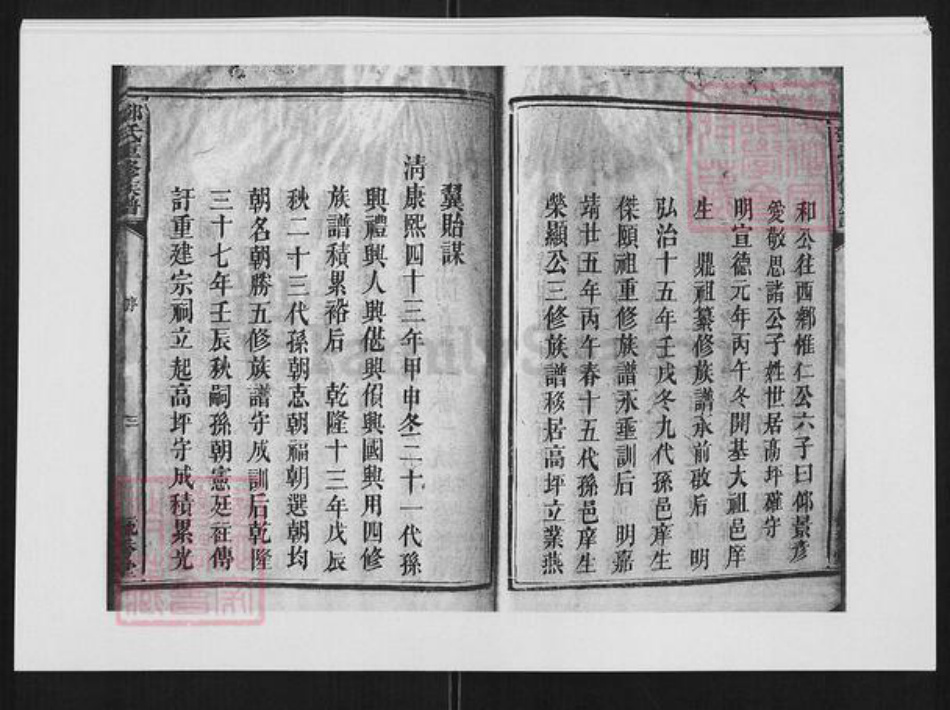 和公往西鄰惟仁公六子曰鄧景彥
愛敬思諸公子姓世居高坪確守
明宣德元年丙午冬開基大祖邑庠
生　鼎祖纂修族譜承前啟后　明
弘治十五年壬戌冬九代孫邑庠生
傑頤祖重修族譜永垂訓后　明嘉
靖廿五年丙午春十五代孫邑庠生
榮顯公三修族譜移居高坪立業燕
翼貽謀
清康熙四十三年甲申冬二十一代孫
興禮興人興偡興傎興國興用四修
族譜積累裕后　乾隆十三年戊辰
秋二十三代孫朝忠朝福朝選朝均
朝名朝勝五修族譜守成訓后乾隆
三十七年壬辰秋嗣孫朝憲廷在傳
訏重建宗祠立起高坪守成積累光
氏重修族譜
序
三